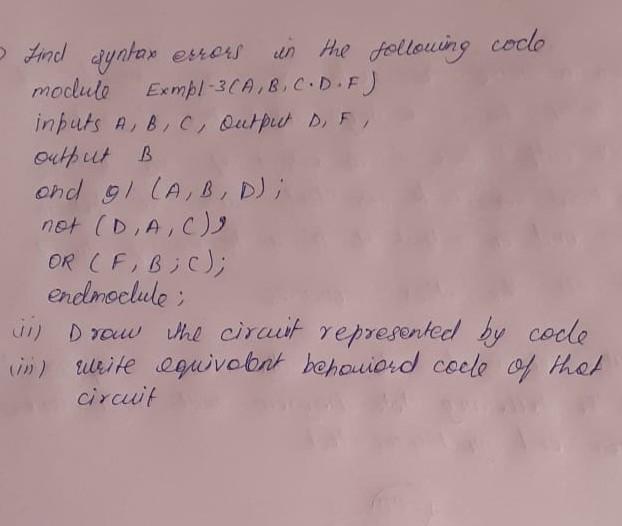 ) Find syntax errors in the following code
module Exmpl-3(A, B, C. D. F)
inputs A, B, C, Output D, F,
output B
and g1 (A, B, D);
not (D, A, C),
OR (F, B; C);
endmodule;
(ii) Draw the circuit represented by code
(iii) write equivalent behaviord code of that
circuit